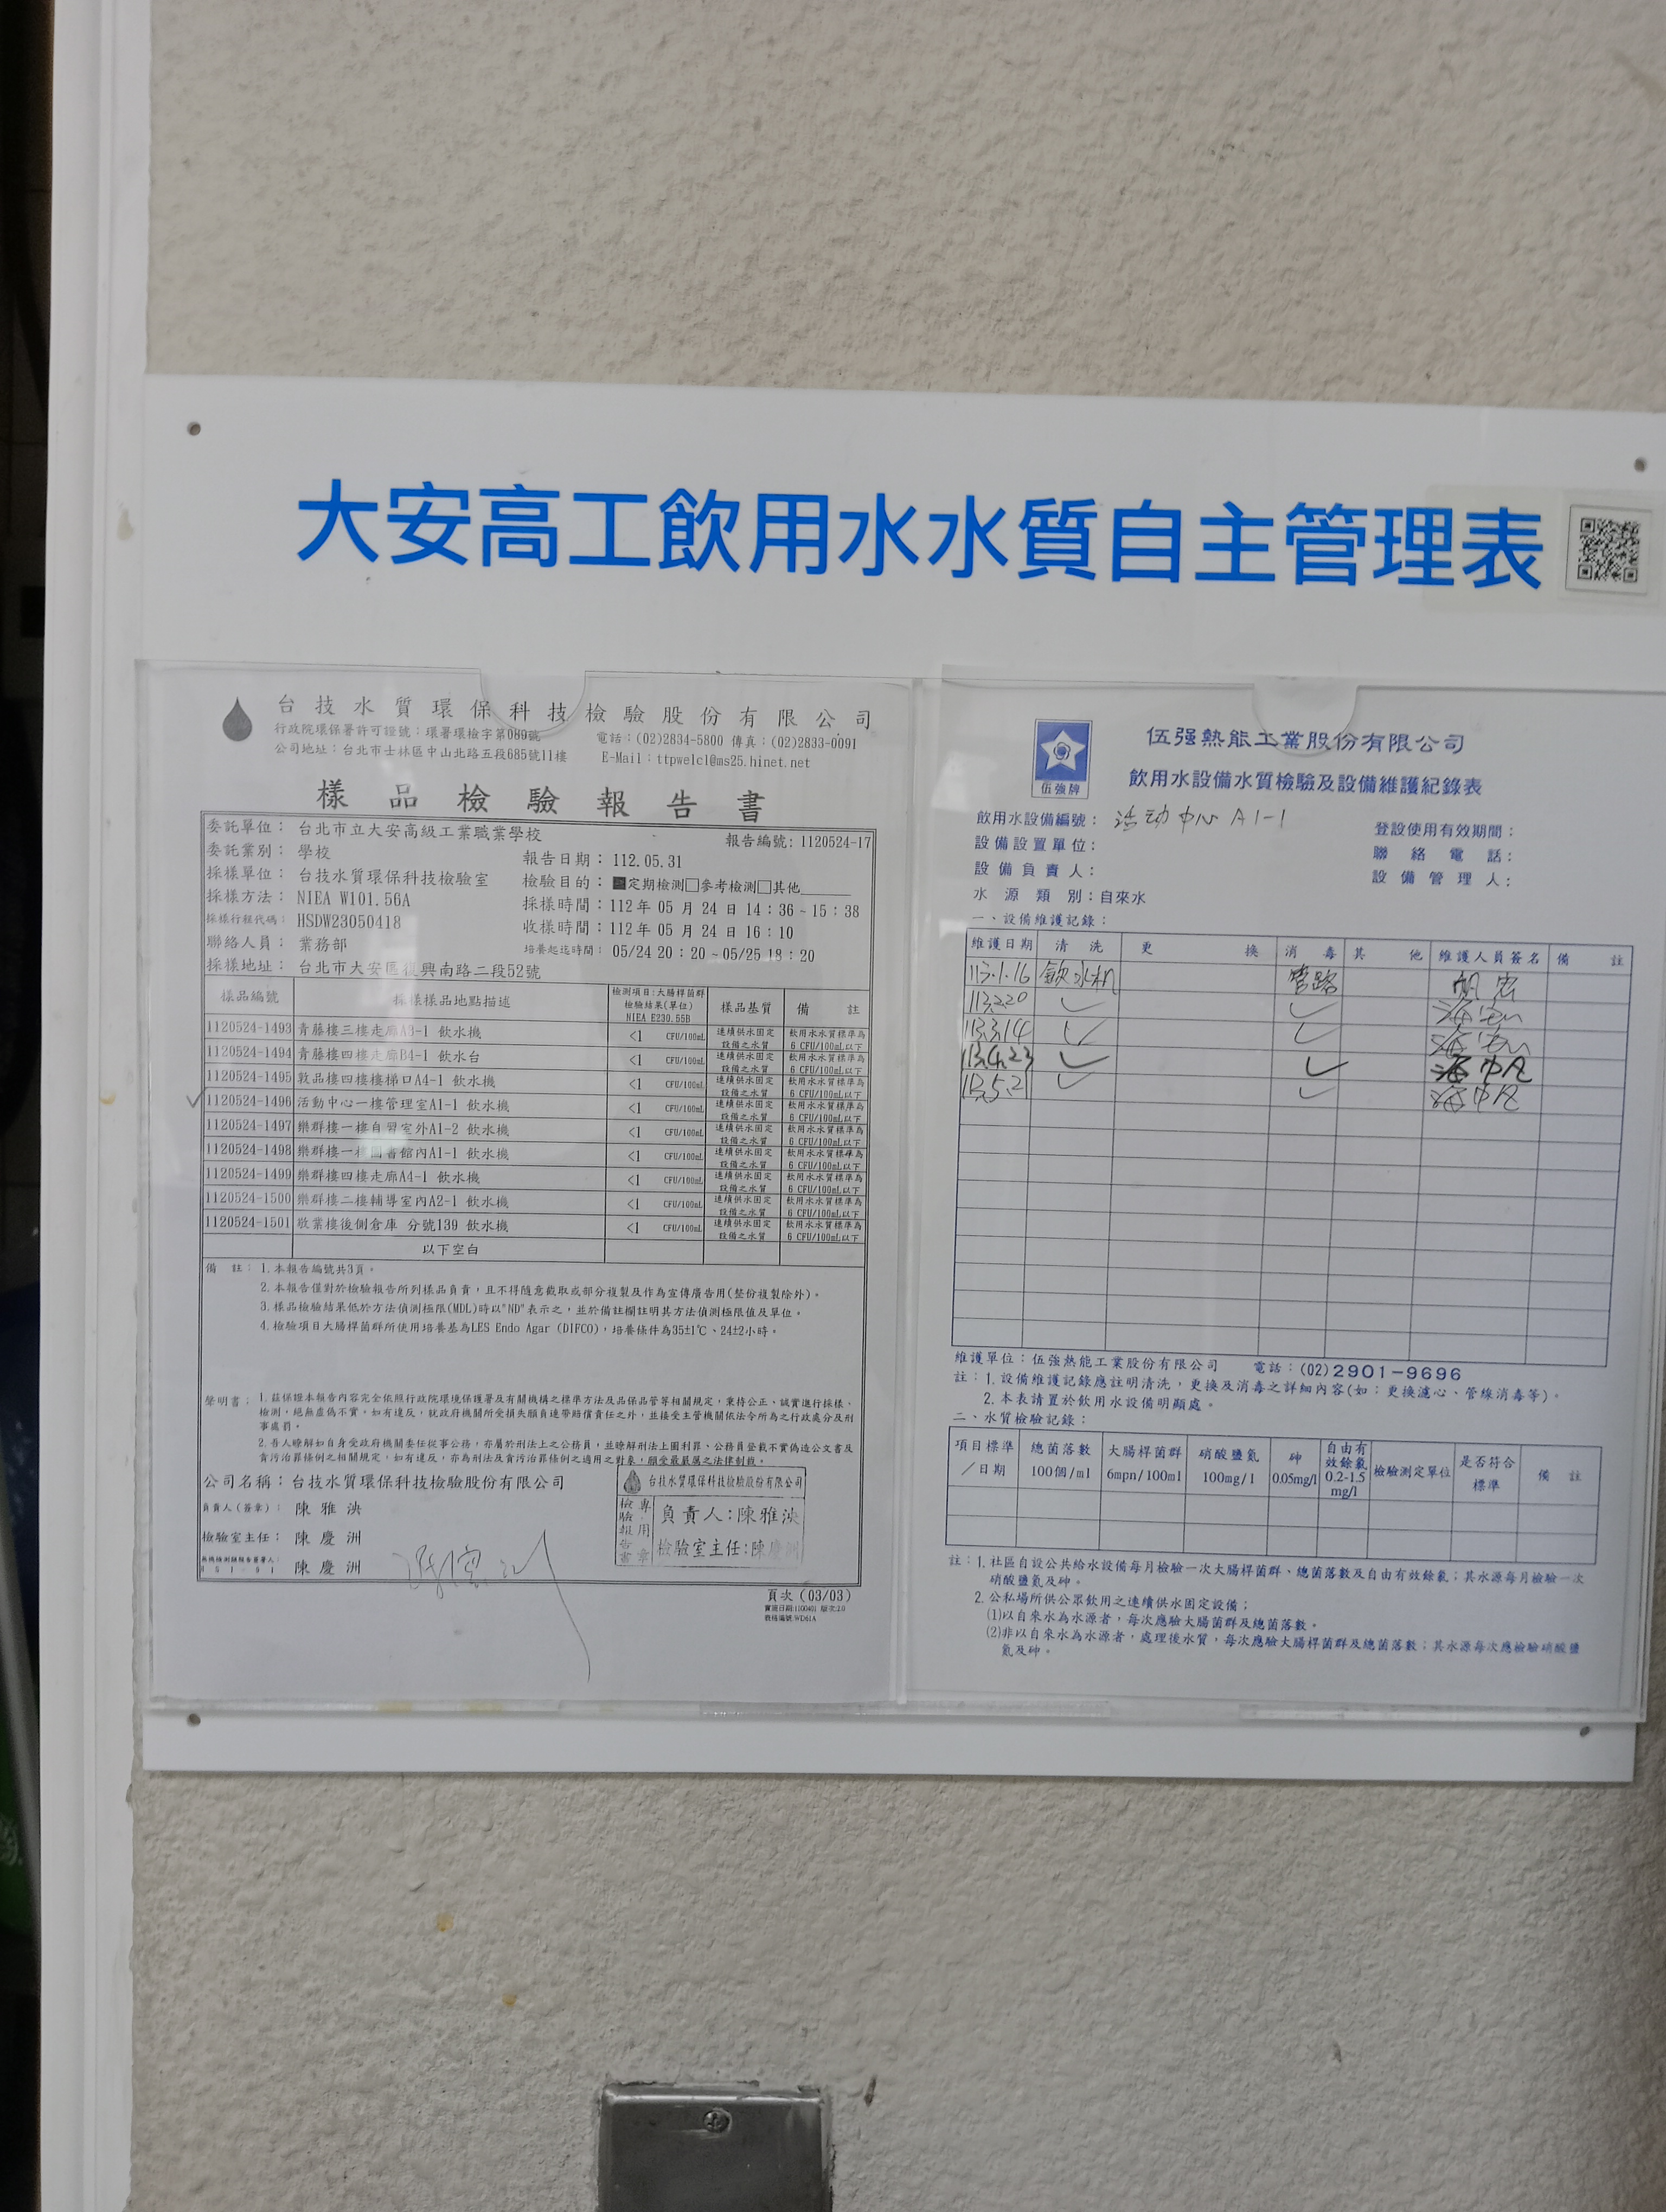 大安高工飲用水水質自主管理表
台技水質環保科技檢驗股份有限公司
行政院環保署許可證號：環署環檢字第089號
電話：(02)2834-5800 傳真：(02)2833-0091
公司地址：台北市士林區中山北路五段685號11樓
E-Mail：ttpwelcl@ms25.hinet.net
樣品檢驗報告書
委託單位：台北市立大安高級工業職業學校
報告編號：1120524-17
委託業別：學校
報告日期：112.05.31
採樣單位：台技水質環保科技檢驗室
檢驗目的：■定期檢測□參考檢測□其他
採樣方法：NIEA W101.56A
採樣時間：112年 05 月 24 日 14：36 ~ 15：38
採樣行程代碼：HSDW23050418
收樣時間：112年 05 月 24 日 16：10
聯絡人員：業務部
培養起迄時間：05/24 20：20 ~ 05/25 18：20
採樣地址：台北市大安區復興南路二段52號
樣品編號 採樣樣品地點描述 檢測項目:大腸桿菌群 檢驗結果(單位) NIEA E230.55B 樣品基質 備註
1120524-1493 青藤樓三樓走廊A3-1 飲水機 <1 CFU/100mL 連續供水固定設備之水質 飲用水水質標準為6 CFU/100mL以下
1120524-1494 青藤樓四樓走廊B4-1 飲水台 <1 CFU/100mL 連續供水固定設備之水質 飲用水水質標準為6 CFU/100mL以下
1120524-1495 敦品樓四樓樓梯口A4-1 飲水機 <1 CFU/100mL 連續供水固定設備之水質 飲用水水質標準為6 CFU/100mL以下
✓1120524-1496 活動中心一樓管理室A1-1 飲水機 <1 CFU/100mL 連續供水固定設備之水質 飲用水水質標準為6 CFU/100mL以下
1120524-1497 樂群樓一樓自習室外A1-2 飲水機 <1 CFU/100mL 連續供水固定設備之水質 飲用水水質標準為6 CFU/100mL以下
1120524-1498 樂群樓一樓圖書館內A1-1 飲水機 <1 CFU/100mL 連續供水固定設備之水質 飲用水水質標準為6 CFU/100mL以下
1120524-1499 樂群樓四樓走廊A4-1 飲水機 <1 CFU/100mL 連續供水固定設備之水質 飲用水水質標準為6 CFU/100mL以下
1120524-1500 樂群樓二樓輔導室內A2-1 飲水機 <1 CFU/100mL 連續供水固定設備之水質 飲用水水質標準為6 CFU/100mL以下
1120524-1501 敬業樓後側倉庫 分號139 飲水機 <1 CFU/100mL 連續供水固定設備之水質 飲用水水質標準為6 CFU/100mL以下
以下空白
備註：1.本報告編號共3頁。
2.本報告僅對於檢驗報告所列樣品負責，且不得隨意截取或部分複製及作為宣傳廣告用(整份複製除外)。
3.樣品檢驗結果低於方法偵測極限(MDL)時以"ND"表示之，並於備註欄註明其方法偵測極限值及單位。
4.檢驗項目大腸桿菌群所使用培養基為LES Endo Agar (DIFCO)，培養條件為35±1℃、24±2小時。
聲明書：1.茲保證本報告內容完全依照行政院環境保護署及有關機構之標準方法及品保品管等相關規定，秉持公正、誠實進行採樣、
檢測，絕無虛偽不實，如有違反，就政府機關所受損失願負連帶賠償責任之外，並接受主管機關依法令所為之行政處分及刑
事處罰。
2.吾人瞭解如自身受政府機關委任從事公務，亦屬於刑法上之公務員，並瞭解刑法上圖利罪、公務員登載不實偽造公文書及
貪污治罪條例之相關規定，如有違反，亦為刑法及貪污治罪條例之適用之對象，願受最嚴厲之法律制裁。
公司名稱：台技水質環保科技檢驗股份有限公司
負責人(簽章)：陳雅泱
檢驗室主任：陳慶洲
陳慶洲
台技水質環保科技檢驗股份有限公司
檢驗報告書專用章
負責人:陳雅泱
檢驗室主任:陳慶洲
頁次 (03/03)
實施日期:1100401 版次:2.0
表格編號:WD61A
伍強牌
伍强熱能工業股份有限公司
飲用水設備水質檢驗及設備維護紀錄表
飲用水設備編號：活动中心 A1-1
登設使用有效期間：
設備設置單位：
聯絡電話：
設備負責人：
設備管理人：
水源類別：自來水
一、設備維護記錄：
維護日期 清洗 更換 消毒 其他 維護人員簽名 備註
113.1.16 飲水机 管路
113.2.20 ✓ ✓
113.3.14 ✓ ✓
113.4.23 ✓ ✓
113.5.21 ✓ ✓
維護單位：伍強熱能工業股份有限公司 電話：(02)2901-9696
註：1.設備維護記錄應註明清洗，更換及消毒之詳細內容(如：更換濾心、管線消毒等)。
2.本表請置於飲用水設備明顯處。
二、水質檢驗記錄：
項目標準／日期 總菌落數 100個/ml 大腸桿菌群 6mpn/100ml 硝酸鹽氮 100mg/l 砷 0.05mg/l 自由有效餘氯 0.2-1.5 mg/l 檢驗測定單位 是否符合標準 備註
註：1.社區自設公共給水設備每月檢驗一次大腸桿菌群、總菌落數及自由有效餘氯；其水源每月檢驗一次
硝酸鹽氮及砷。
2.公私場所供公眾飲用之連續供水固定設備；
(1)以自來水為水源者，每次應驗大腸菌群及總菌落數。
(2)非以自來水為水源者，處理後水質，每次應驗大腸桿菌群及總菌落數；其水源每次應檢驗硝酸鹽
氮及砷。